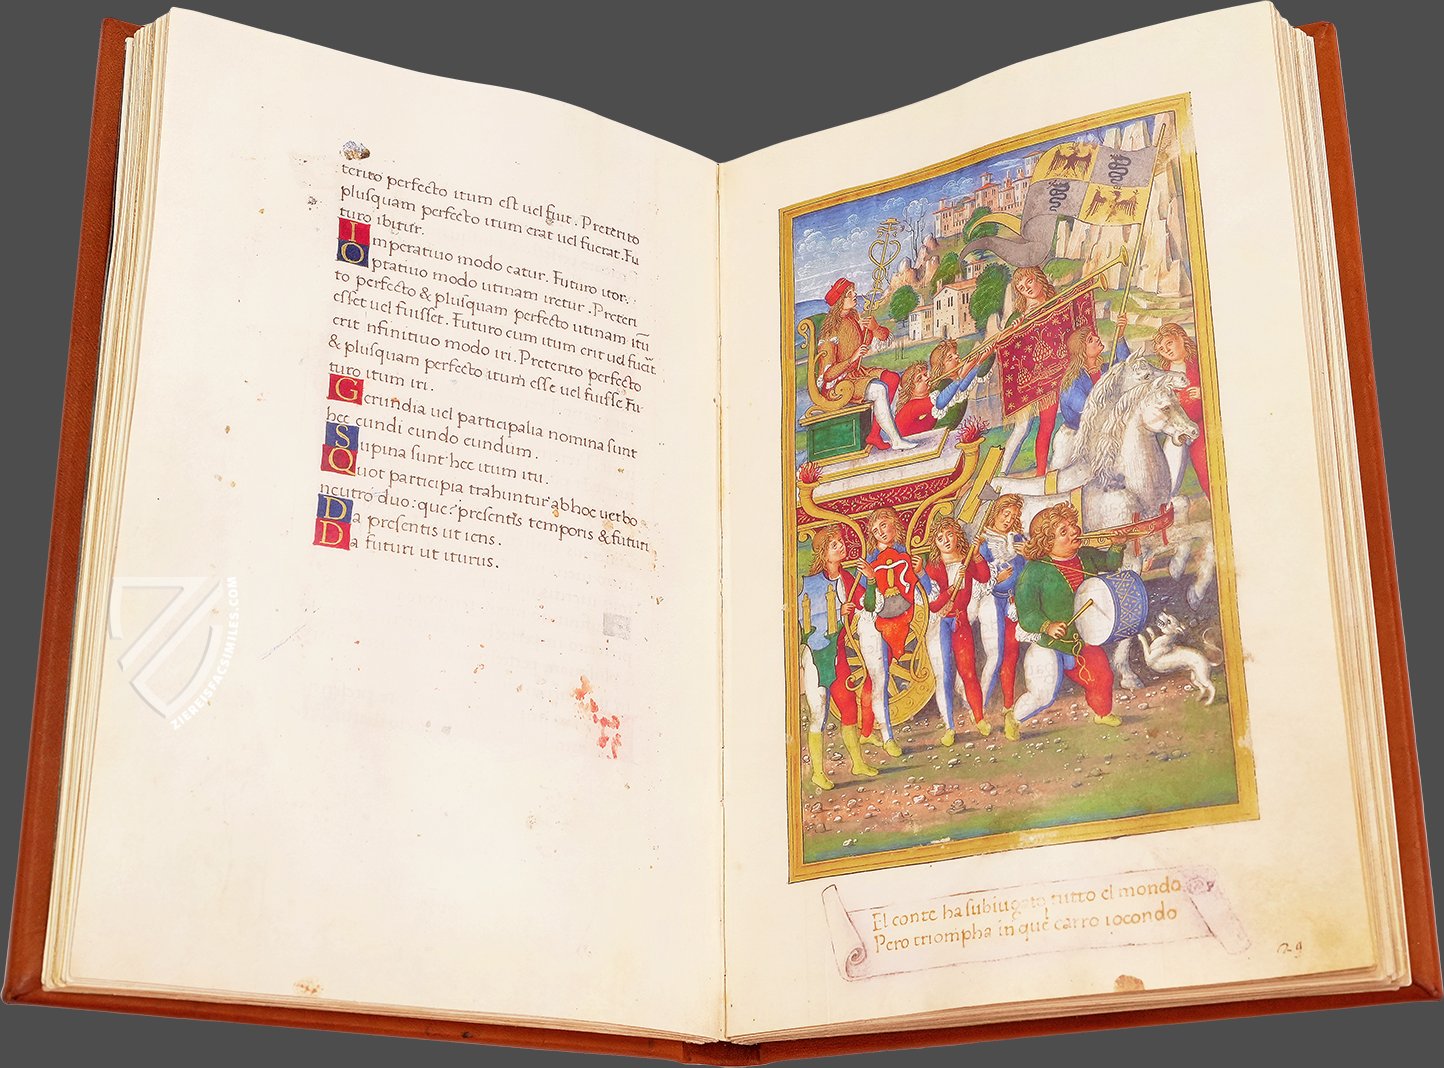 terito perfecto itum est uel fuit. Preterito
plusquam perfecto itum erat uel fuerat. Fu
turo ibitur.
Imperatiuo modo eatur. Futuro itor.
Optatiuo modo utinam iretur. Preteri
to perfecto & plusquam perfecto utinam itū
esset uel fuisset. Futuro cum itum erit uel fuerit
erit nfinitiuo modo iri. Preterito perfecto
& plusquam perfecto itum esse uel fuisse Fu-
turo itum iri.
Gerundia uel participalia nomina sunt
hec eundi eundo eundum.
Supina sunt hec itum itu.
Quot participia trahuntur ab hoc uerbo
neutro duo: que? presentis temporis & futuri
Da presentis ut iens.
Da futuri ut iturus.
El conte ha subiugato tutto el mondo
Pero triompha in que carro iocondo
ZIEREISFACSIMILES.COM